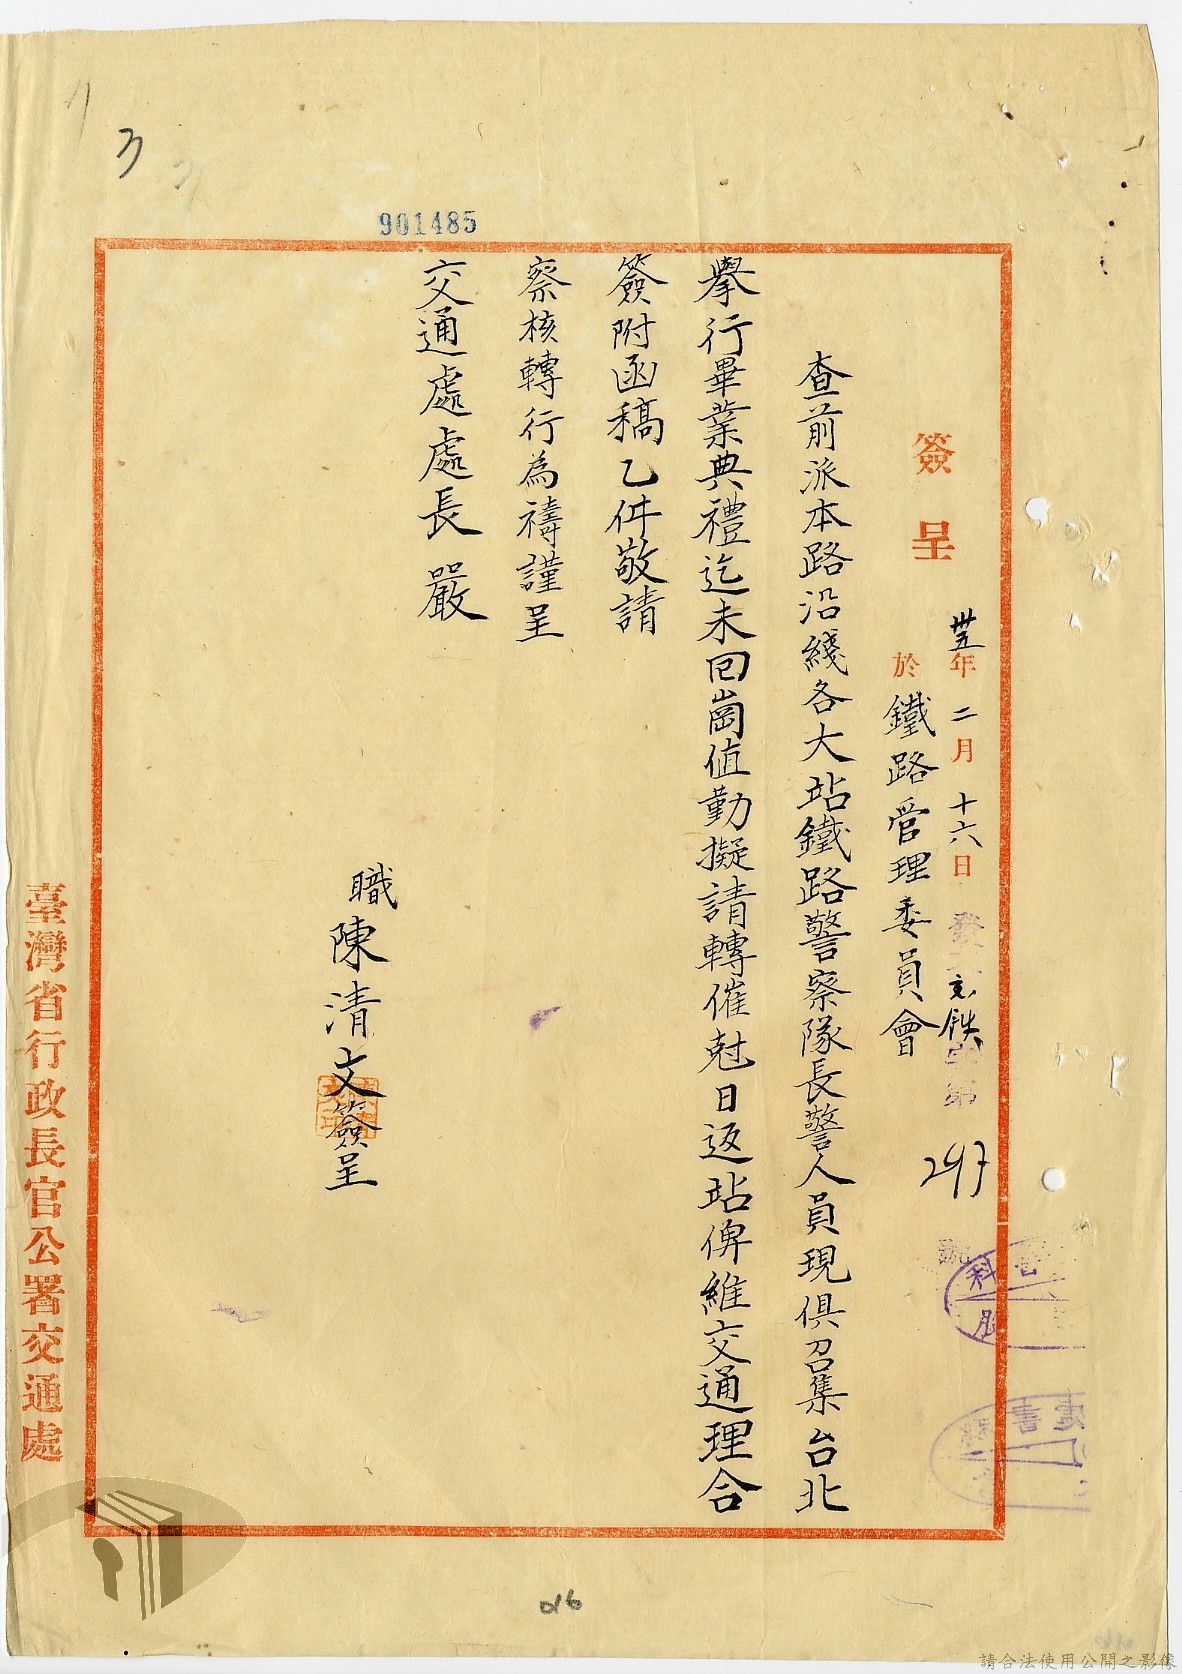 901485
簽呈
卅五年二月十六日
於鐵路管理委員會
查前派本路沿綫各大站鐵路警察隊長警人員現俱召集台北
舉行畢業典禮迄未回崗值勤擬請轉催尅日返站俾維交通理合
簽附函稿乙件敬請
察核轉行為禱謹呈
交通處處長嚴
職陳清文簽呈
臺灣省行政長官公署交通處
請合法使用公開之影像